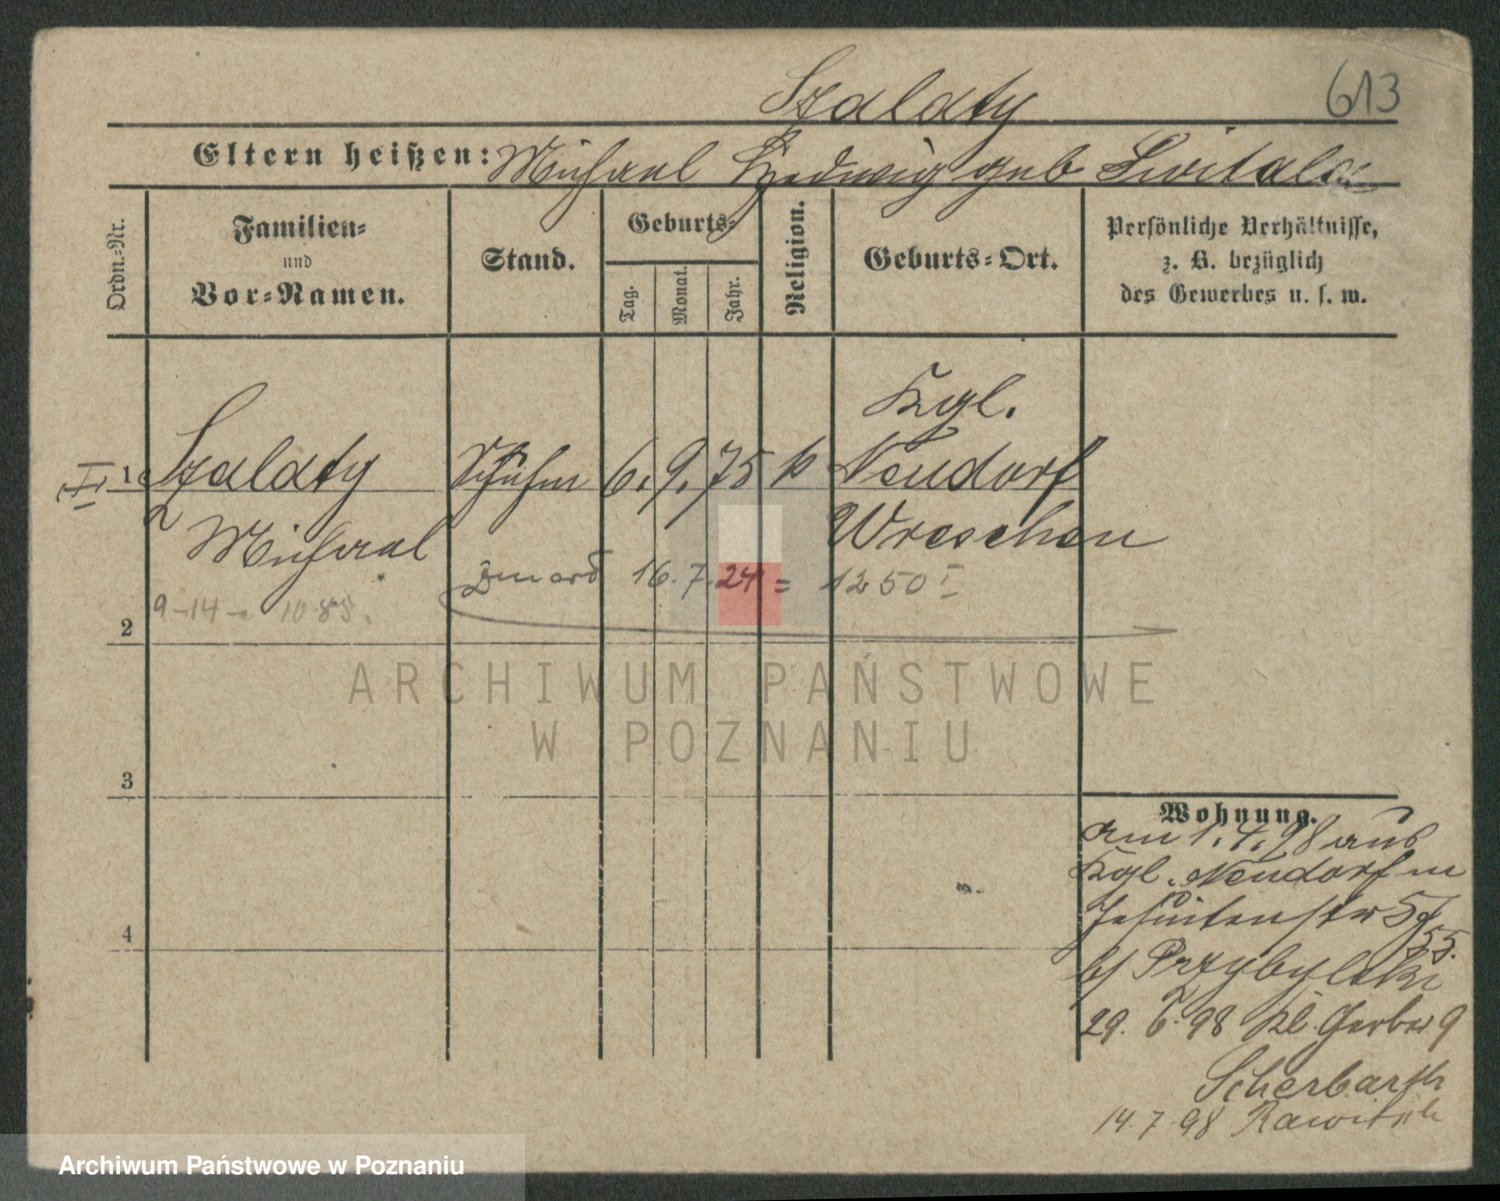 613
Szalaty
Eltern heißen: Michael Hedwig geb Switala
Ordn.-Nr.
Familien-
und
Vor-Namen.
Stand.
Geburts-
Tag.
Monat.
Jahr.
Religion.
Geburts-Ort.
Persönliche Verhältnisse,
z. B. bezüglich
des Gewerbes u. s. w.
Kgl.
I 1 Szalaty 6. 9. 75 k Neudorf
Michael Wreschen
zmarł 16. 7. 24 = 1250 I
9-14 - 1085.
2
ARCHIWUM PAŃSTWOWE
W POZNANIU
3
Wohnung.
am 1. 4. 98 aus
Kgl. Neudorf in
Jesuitenstr 5
55.
b/ Przybylski
4
29. 6. 98 Kl. Gerber 9
Scherbarth
14. 7. 98 Rawitsch
Archiwum Państwowe w Poznaniu